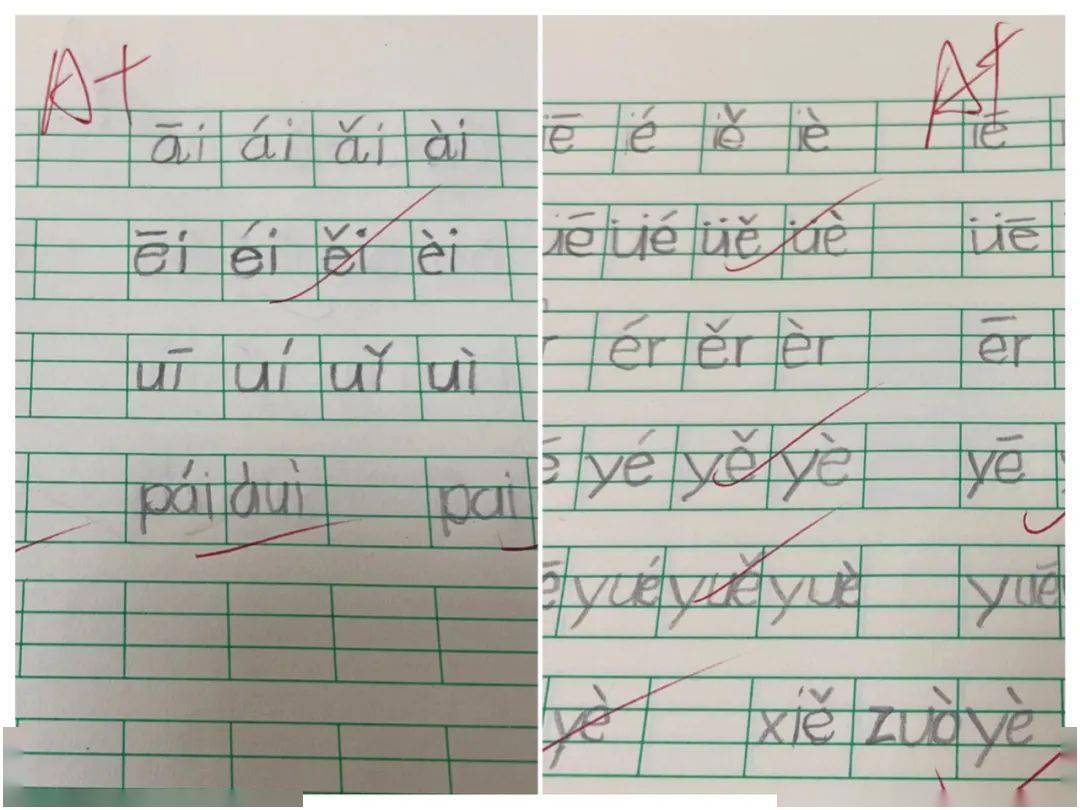 A+
āi ái ǎi ài
ēi éi ěi èi
uī uí uǐ uì
pái duì pai
A+
iē ié iě iè iē
üē üé üě üè üē
ér ěr èr ēr
yé yě yè yē
yué yuě yuè yuē
yè xiě zuò yè